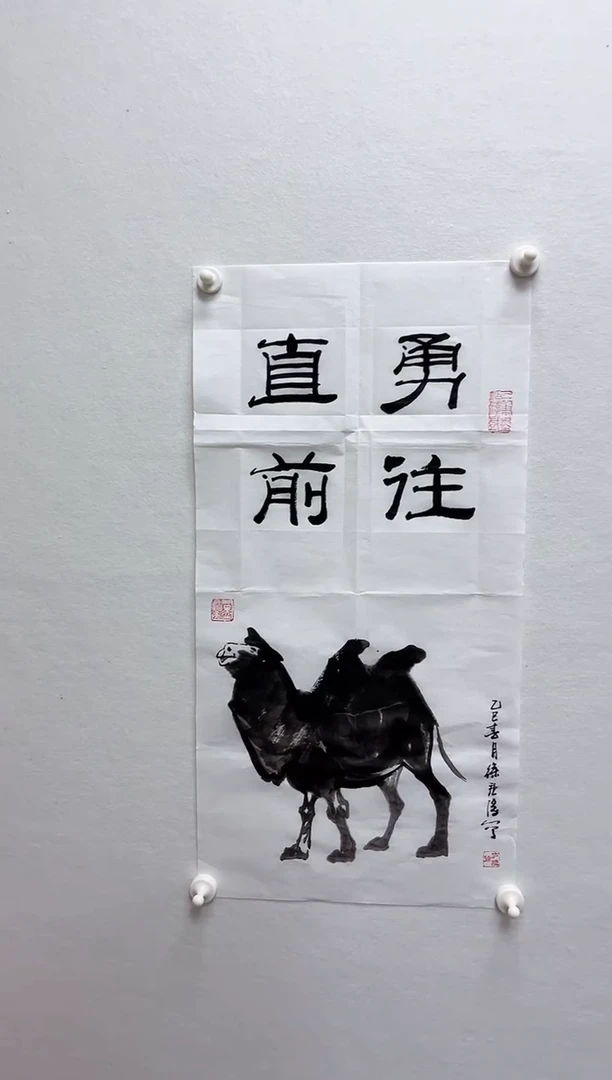 勇往
直前
乙巳春月徐写